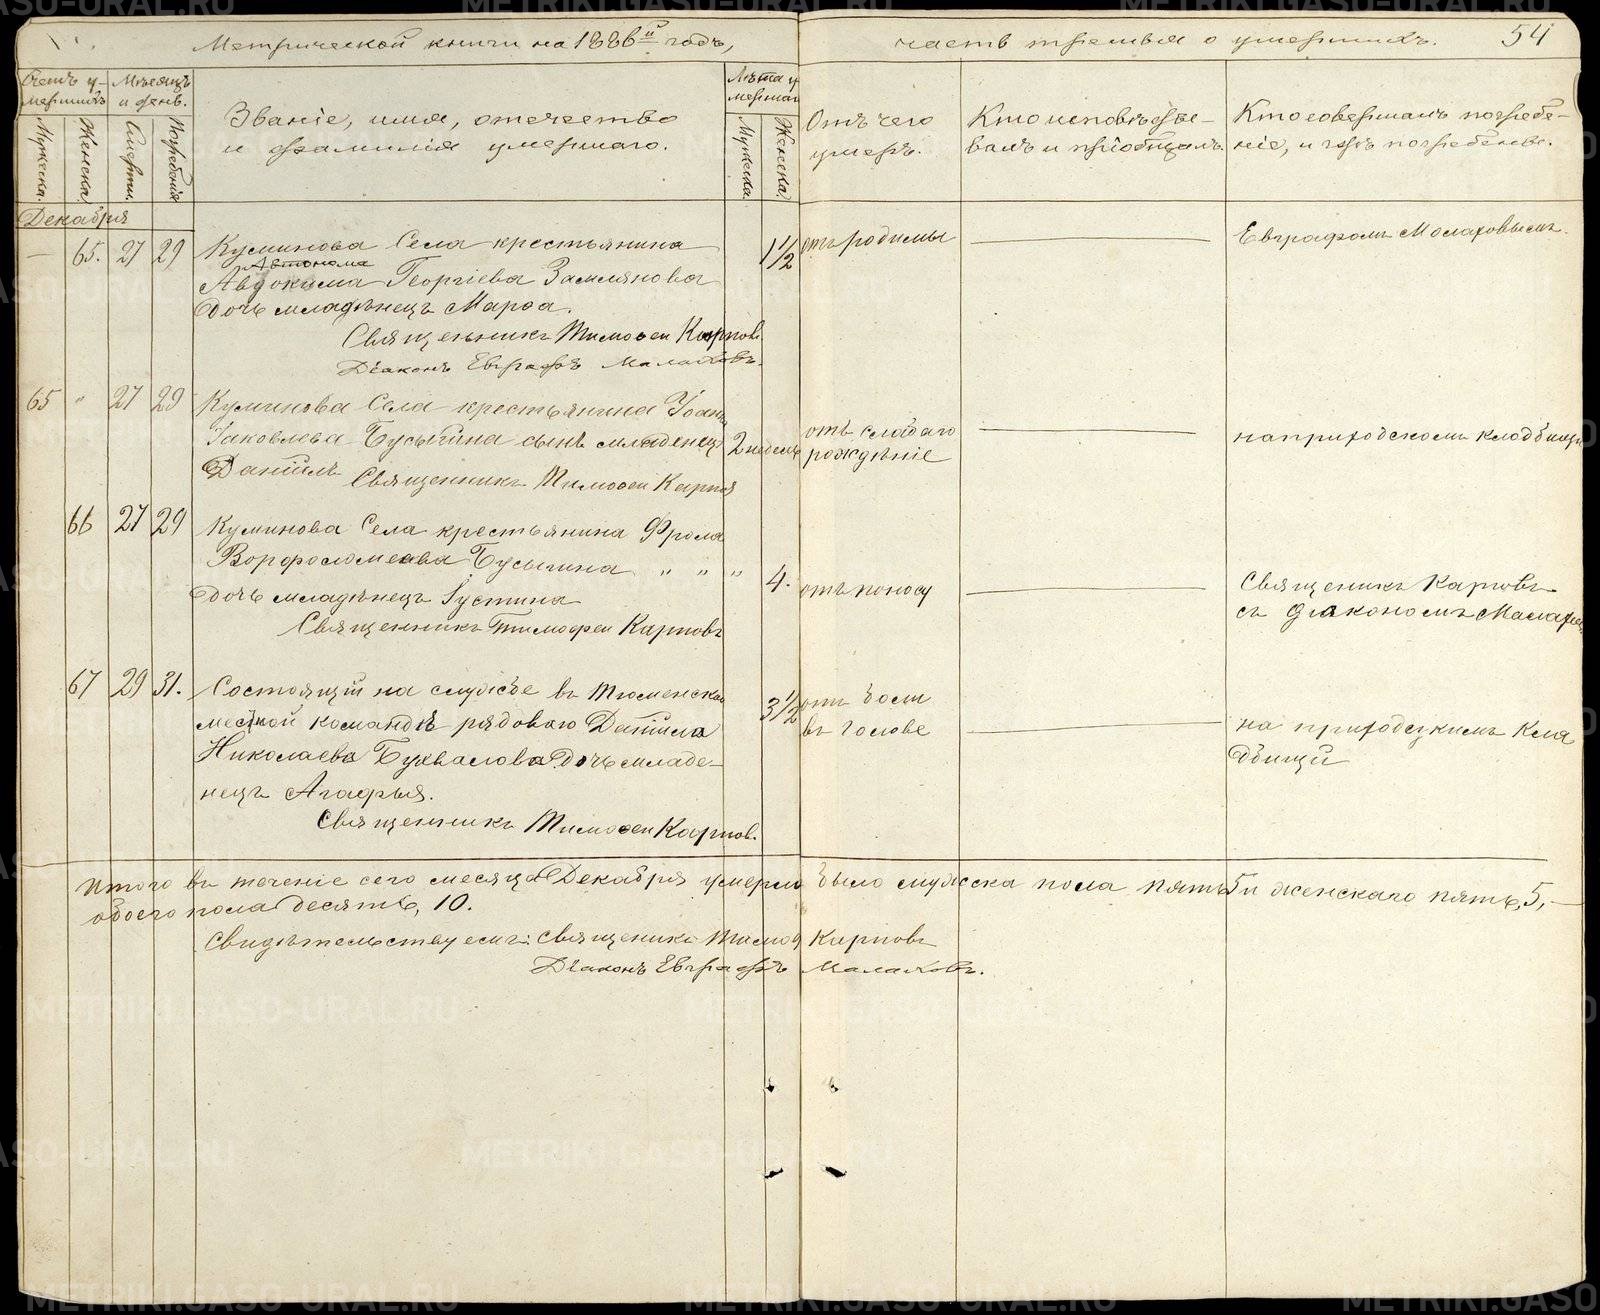 Метрической книги на 1886й годъ,
часть третья о умершихъ.
54
Счетъ у-
мершихъ
Мужеска.
Женска.
Мѣсяцъ
и день.
Смерти.
Погребенія
Званіе, имя, отечество
и фамилія умершаго.
Лѣта у
мершаг
Мужеска.
Женска.
Отъ чего
умеръ.
Кто исповѣды-
валъ и пріобщалъ.
Кто совершалъ погребе-
ніе, и гдѣ погребены.
Декабря
— 65. 27 29
Куминова Села крестьянина
Автонома
Авдокима Георгіева Замлянова
дочь младѣнецъ Марѳа.
Священникъ Тимоѳеи Карповъ
Діаконъ Евграфъ Малаховъ.
1½
отъ родимы
Евграфомъ Молаховымъ.
65 " 27 29
Куминова Села крестьянина Іоанн
Іаковлева Бусыгина сынъ младенецъ
Даніилъ
Священникъ Тимоѳеи Карпов
2 недель
отъ слабаго
рождѣніе
на приходскомъ кладбищи
66 27 29
Куминова Села крестьянина Фрола
Ворфоломеева Бусыгина " " "
дочь младѣнецъ Іустина
Священникъ Тимофеи Карповъ
4.
отъ поносу
Священикъ Карповъ
съ діакономъ Малахов
67 29 31.
Состоящій на службе въ Тюменской
местной командѣ рядоваго Даніила
Николаева Бухвалова дочь младе-
нецъ Агафья.
Священникъ Тимоѳеи Карповъ.
3½
отъ боли
въ голове
на приходскимъ Кла
дбищи
Итого въ теченіе сего месяца Декабря умерло было мужеска пола пять 5 и женскаго пять, 5, —
обоего пола десять, 10.
Свидѣтельствуемъ: Священикъ Тимоѳ Карповъ
Діаконъ Евграфъ Малаховъ.
METRIKI.GASO-URAL.RU